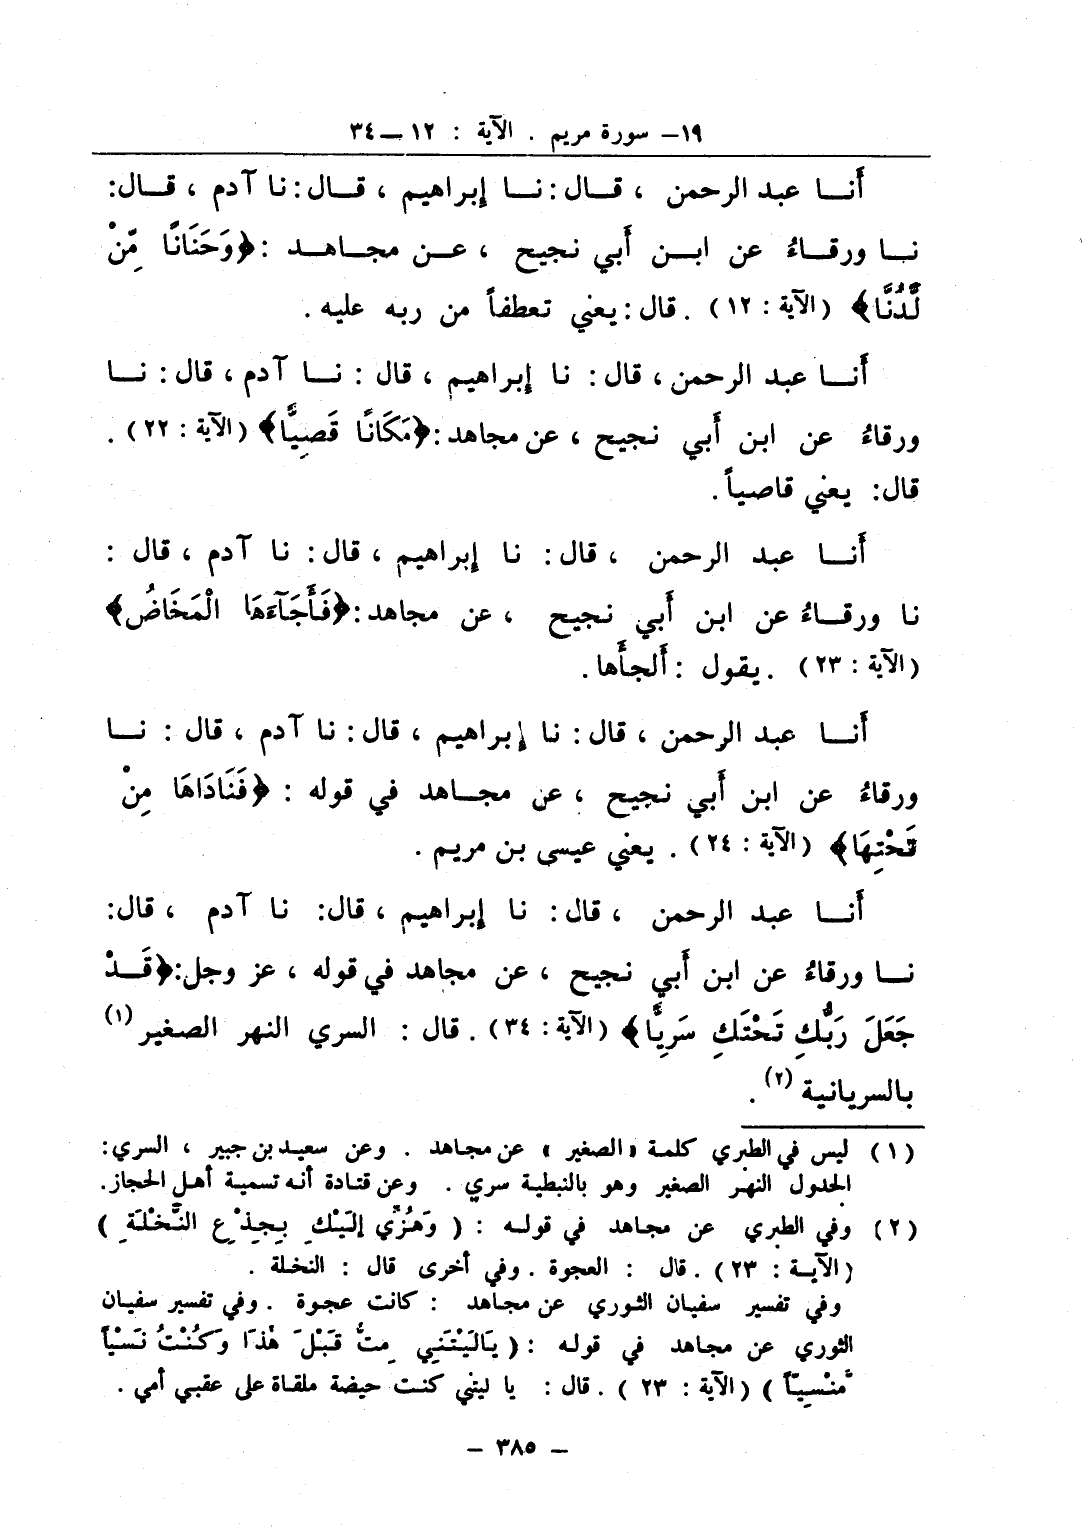 ١٩- سورة مريم . الآية : ١٢-٣٤
أنا عبد الرحمن ، قال : نا إبراهيم ، قال : نا آدم ، قال :
نا ورقاءُ عن ابن أبي نجيح ، عن مجاهد : ﴿وَحَنَانًا مِّنْ
لَّدُنَّا﴾ (الآية : ١٢) . قال : يعني تعطفاً من ربه عليه .
أنا عبد الرحمن ، قال : نا إبراهيم ، قال : نا آدم ، قال : نا
ورقاءُ عن ابن أبي نجيح ، عن مجاهد : ﴿مَكَانًا قَصِيًّا﴾ (الآية : ٢٢) .
قال : يعني قاصياً .
أنا عبد الرحمن ، قال : نا إبراهيم ، قال : نا آدم ، قال :
نا ورقاءُ عن ابن أبي نجيح ، عن مجاهد : ﴿فَأَجَآءَهَا الْمَخَاضُ﴾
(الآية : ٢٣) . يقول : ألجأها .
أنا عبد الرحمن ، قال : نا إبراهيم ، قال : نا آدم ، قال : نا
ورقاءُ عن ابن أبي نجيح ، عن مجاهد في قوله : ﴿فَنَادَاهَا مِنْ
تَحْتِهَا﴾ (الآية : ٢٤) . يعني عيسى بن مريم .
أنا عبد الرحمن ، قال : نا إبراهيم ، قال : نا آدم ، قال :
نا ورقاءُ عن ابن أبي نجيح ، عن مجاهد في قوله ، عز وجل : ﴿قَدْ
جَعَلَ رَبُّكِ تَحْتَكِ سَرِيًّا﴾ (الآية : ٣٤) . قال : السري النهر الصغير (١)
بالسريانية (٢) .
(١) ليس في الطبري كلمة «الصغير» عن مجاهد . وعن سعيد بن جبير ، السري :
الجدول النهر الصغير وهو بالنبطية سري . وعن قتادة أنه تسمية أهل الحجاز .
(٢) وفي الطبري عن مجاهد في قوله : ( وَهُزِّي إِلَيْكِ بِجِذْعِ النَّخْلَةِ )
(الآية : ٢٣) . قال : العجوة . وفي أخرى قال : النخلة .
وفي تفسير سفيان الثوري عن مجاهد : كانت عجوة . وفي تفسير سفيان
الثوري عن مجاهد في قوله : ( يَالَيْتَنِي مِتُّ قَبْلَ هٰذَا وَكُنْتُ نَسْيًا
مَّنْسِيًّا ) (الآية : ٢٣ ) . قال : يا ليتني كنت حيضة ملقاة على عقبي أمي .
- ٣٨٥ -